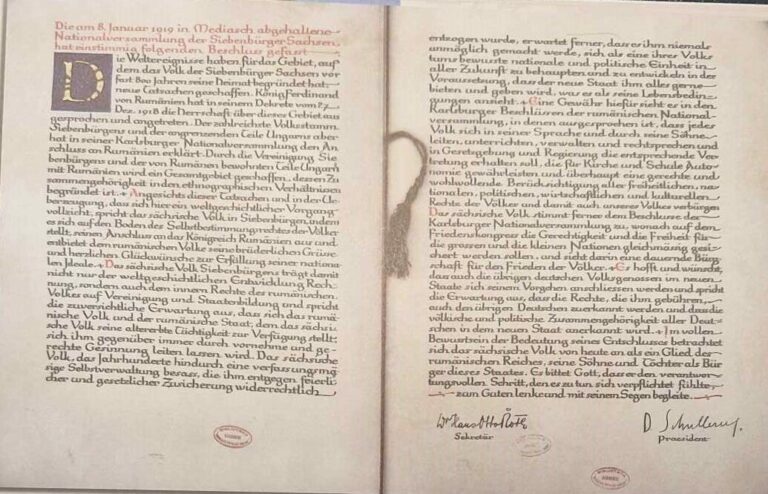 Die am 8. Januar 1919 in Mediasch abgehaltene
Nationalversammlung der Siebenbürger Sachsen
hat einstimmig folgenden Beschluss gefasst
Die Weltereignisse haben für das Gebiet, auf
dem das Volk der Siebenbürger Sachsen vor
fast 800 Jahren seine Heimat begründet hat,
neue Tatsachen geschaffen. König Ferdinand
von Rumänien hat in seinem Dekrete vom 27
Dez. 1918 die Herrschaft über dieses Gebiet aus
gesprochen und angetreten. Der zahlreichste Volksstamm
Siebenbürgens und der angrenzenden Teile Ungarns aber
hat in seiner Karlsburger Nationalversammlung den An
schluss an Rumänien erklärt. Durch die Vereinigung Sie
benbürgens und der von Rumänen bewohnten Teile Ungarns
mit Rumänien wird ein Gesamtgebiet geschaffen, dessen Zu
sammengehörigkeit in den ethnographischen Verhältnissen
begründet ist. + Angesichts dieser Tatsachen und in der Ue-
berzeugung, dass sich hier ein weltgeschichtlicher Vorgang
vollzieht, spricht das sächsische Volk in Siebenbürgen, indem
es sich auf den Boden des Selbstbestimmungsrechtes der Völker
stellt, seinen Anschluss an das Königreich Rumänien aus und
entbietet dem rumänischen Volke seine brüderlichen Grüsse
und herzlichen Glückwünsche zur Erfüllung seiner nationa-
len Ideale. + Das sächsische Volk Siebenbürgens trägt damit
nicht nur der weltgeschichtlichen Entwicklung Rech-
nung, sondern auch dem innern Rechte des rumänischen
Volkes auf Vereinigung und Staatenbildung und spricht
die zuversichtliche Erwartung aus, dass sich das rumä
nische Volk und der rumänische Staat, dem das sächsi
sche Volk seine altererbte Tüchtigkeit zur Verfügung stellt,
sich ihm gegenüber immer durch vornehme und ge-
rechte Gesinnung leiten lassen wird. Das sächsische
Volk, das Jahrhunderte hindurch eine verfassungsmä
ssige Selbstverwaltung besass, die ihm entgegen feierli
cher und gesetzlicher Zusicherung widerrechtlich
entzogen wurde, erwartet ferner, dass es ihm niemals
unmöglich gemacht werde, sich als eine ihres Volks
tums bewusste nationale und politische Einheit in
aller Zukunft zu behaupten und zu entwickeln in der
Voraussetzung, dass der neue Staat ihm alles gerne
bieten und geben wird, was es als seine Lebensbedin
gungen ansieht. + Eine Gewähr hiefür sieht es in den
Karlsburger Beschlüssen der rumänischen National-
versammlung, in denen ausgesprochen ist, dass jedes
Volk sich in seiner Sprache und durch seine Söhne
leiten, unterrichten, verwalten und rechtsprechen und
in Gesetzgebung und Regierung die entsprechende Ver
tretung erhalten soll, die für Kirche und Schule Auto
nomie gewährleisten und überhaupt eine gerechte und
wohlwollende Berücksichtigung aller freiheitlichen, na-
tionalen, politischen, wirtschaftlichen und kulturellen
Rechte der Völker und damit auch unseres Volkes verbürgen
Das sächsische Volk stimmt ferner dem Beschlusse der
Karlsburger Nationalversammlung zu, wonach auf dem
Friedenskongress die Gerechtigkeit und die Freiheit für
die grossen und die kleinen Nationen gleichmässig gesi-
chert werden sollen, und sieht darin eine dauernde Bürg
schaft für den Frieden der Völker. + Es hofft und wünscht,
dass auch die übrigen deutschen Volksgenossen im neuen
Staate sich seinem Vorgehen anschliessen werden und spricht
die Erwartung aus, dass die Rechte, die ihm gebühren,
auch den übrigen Deutschen zuerkannt werden und dass die
völkische und politische Zusammengehörigkeit aller Deut-
schen in dem neuen Staat anerkannt wird. + Im vollen
Bewusstsein der Bedeutung seines Entschlusses betrachtet
sich das sächsische Volk von heute an als ein Glied des
rumänischen Reiches, seine Söhne und Töchter als Bür
ger dieses Staates. Es bittet Gott, dass er den verantwor-
tungsvollen Schritt, den es zu tun sich verpflichtet fühlte,
zum Guten lenke und mit seinem Segen begleite.
Dr Hans Otto Roth
Sekretär
D Schullerus.
Praesident